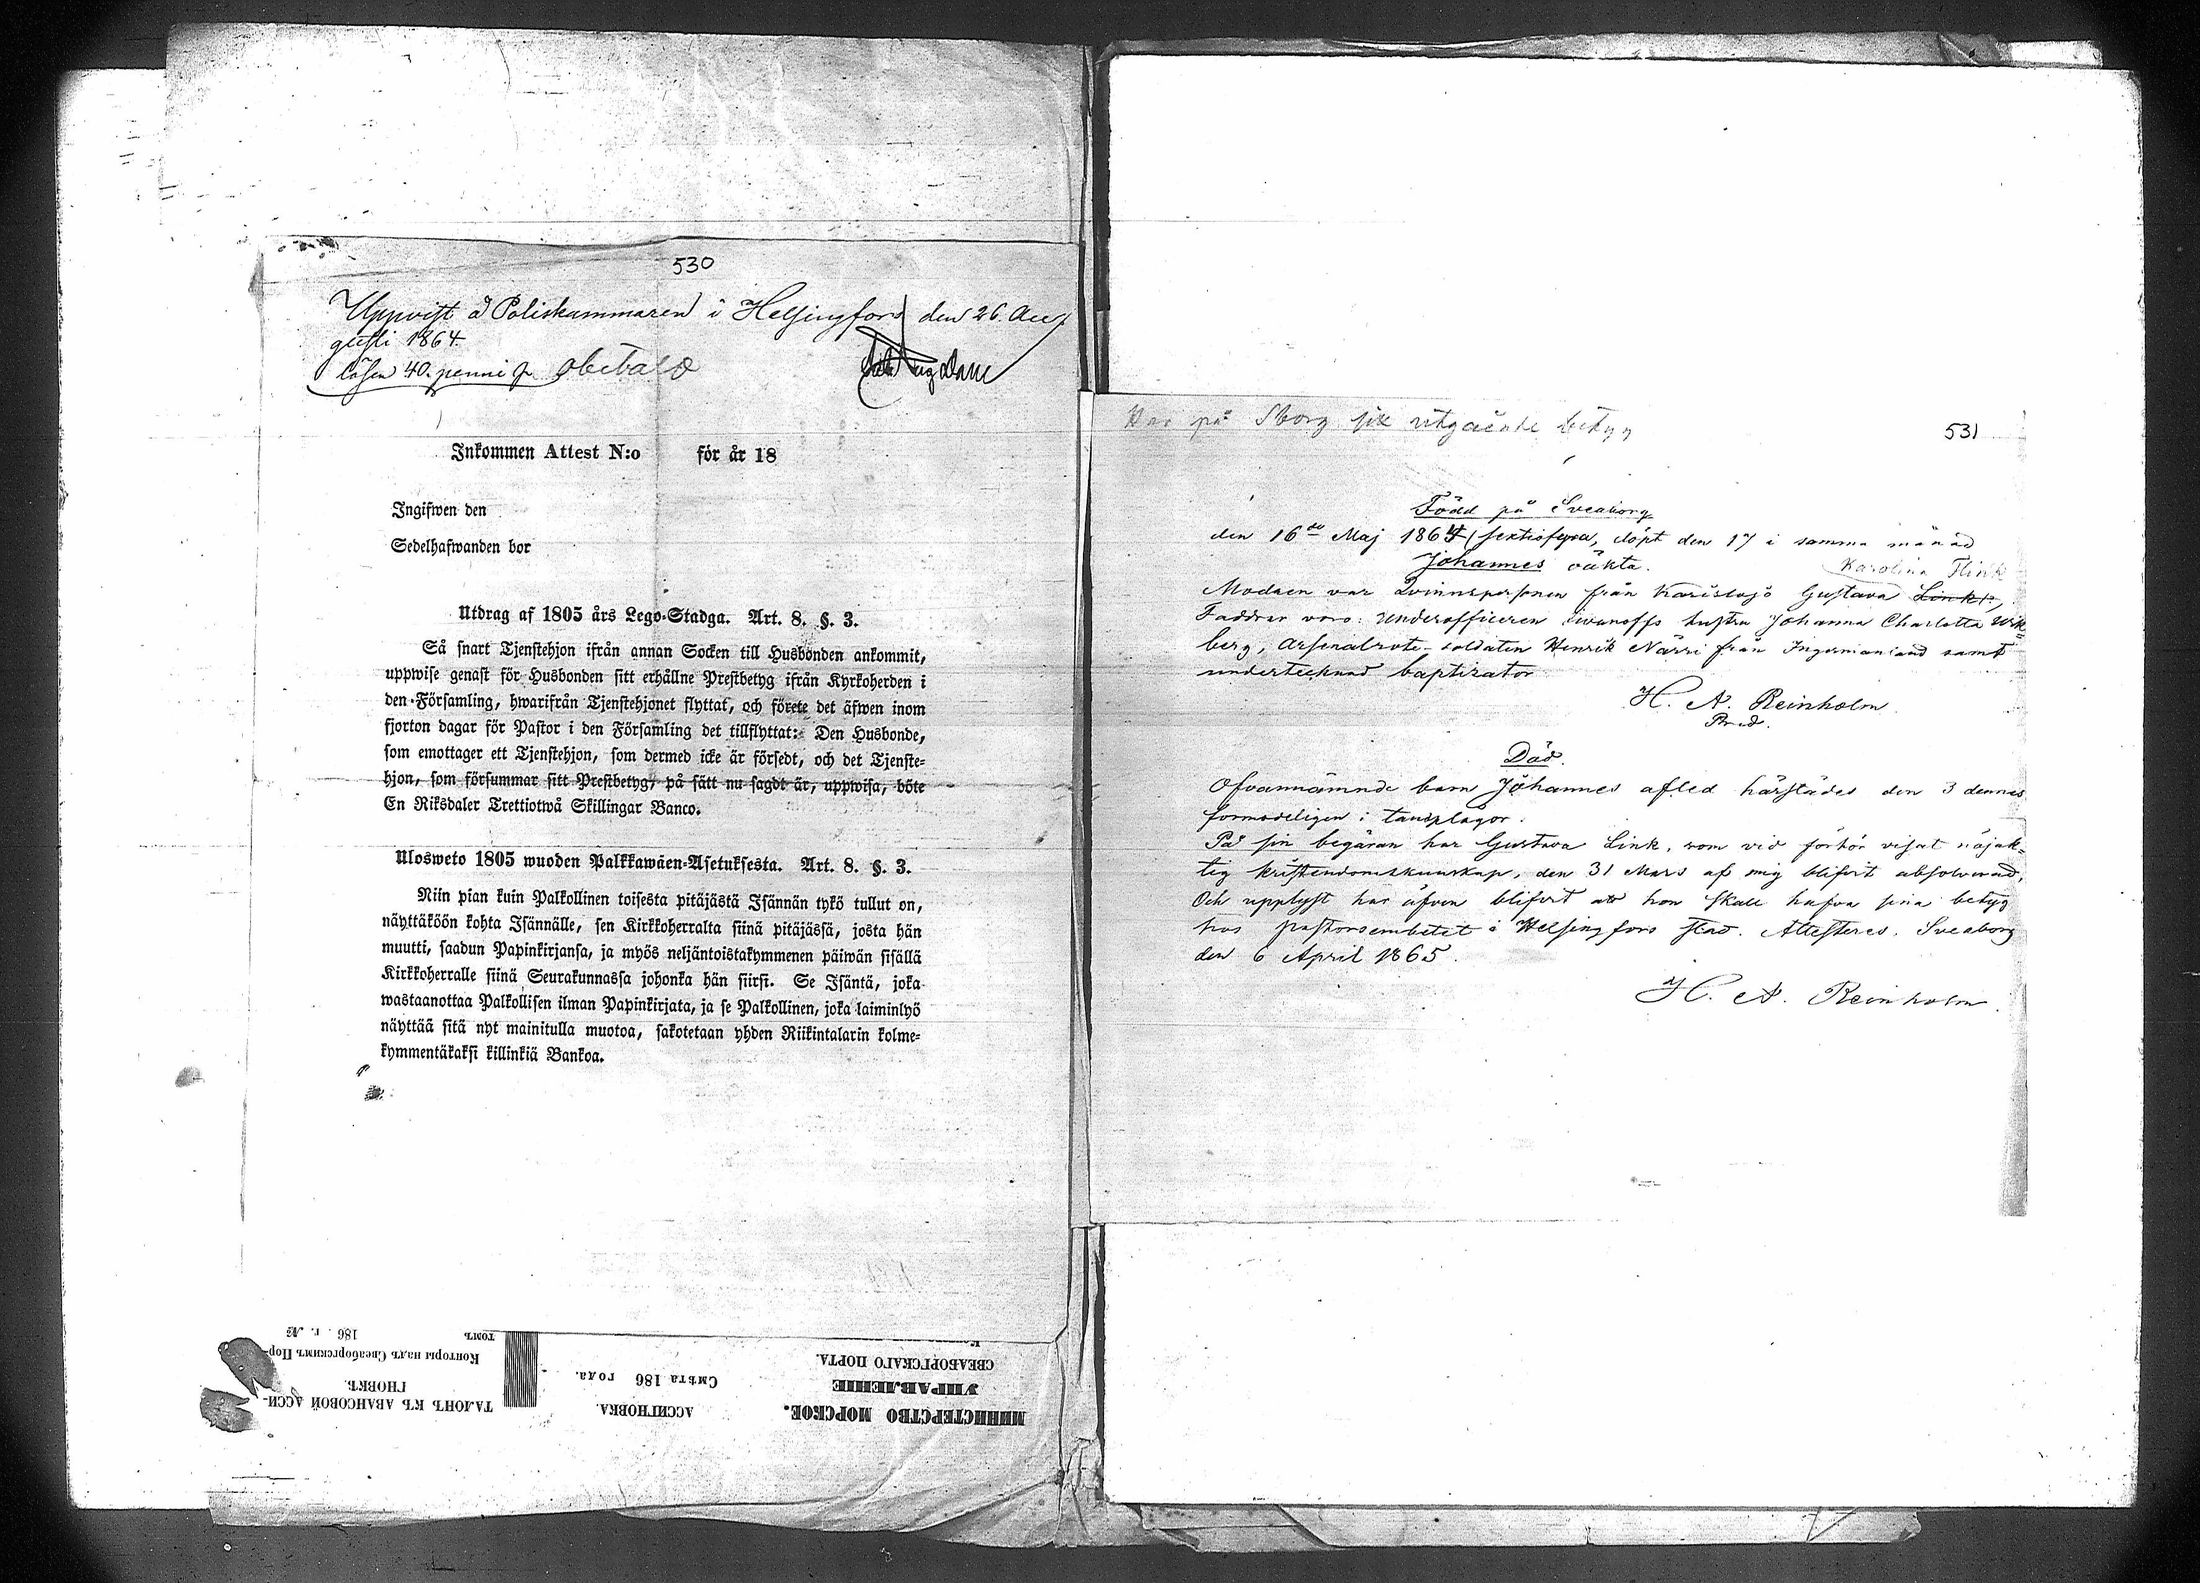 530
Uppvist å Poliskammaren i Helsingfors den 26 Au-
gusti 1864.
lösen 40. penni obetald
Inkommen Attest N:o för år 18
Ingifwen den
Sedelhafwanden bor
Utdrag af 1805 års Lego-Stadga. Art. 8. §. 3.
Så snart Tjenstehjon ifrån annan Socken till Husbonden ankommit,
uppwise genast för Husbonden sitt erhållne Prestbetyg ifrån Kyrkoherden i
den Församling, hwarifrån Tjenstehjonet flyttat, och förete det äfwen inom
fjorton dagar för Pastor i den Församling det tillflyttat: Den Husbonde,
som emottager ett Tjenstehjon, som dermed icke är försedt, och det Tjenste-
hjon, som försummar sitt Prestbetyg, på sätt nu sagdt är, uppwisa, böte
En Riksdaler Trettiotwå Skillingar Banco.
Ulosweto 1805 wuoden Palkkawäen-Asetuksesta. Art. 8. §. 3.
Niin pian kuin Palkollinen toisesta pitäjästä Isännän tykö tullut on,
näyttäköön kohta Isännälle, sen Kirkkoherralta siinä pitäjässä, josta hän
muutti, saadun Papinkirjansa, ja myös neljäntoistakymmenen päiwän sisällä
Kirkkoherralle siinä Seurakunnassa johonka hän siirsi. Se Isäntä, joka
wastaanottaa Palkollisen ilman Papinkirjata, ja se Palkollinen, joka laiminlyö
näyttää sitä nyt mainitulla muotoa, sakotetaan yhden Riikintalarin kolme-
kymmentäkaksi killinkiä Bankoa.
186 г. №
томъ
Конторы надъ Свеаборгскимъ Пор-
ГНОВКѢ.
ТАЛОНЪ КЪ АВАНСОВОЙ АССИ-
Смѣта 186 года.
АССИГНОВКА.
СВЕАБОРГСКАГО ПОРТА.
УПРАВЛЕНІЕ
МИНИСТЕРСТВО МОРСКОЕ.
Har på Sborg utgående betyg
531
Född på Sveaborg
den 16de Maj 1864 (sextiofyra, döpt den 17 i samma månad
Johannes oäkta. Karolina Flink
Modren var Qvinnspersonen från Karislojo Gustava Link,
Faddrar voro: Underofficeren Iwanoffs hustru Johanna Charlotta Wik=
berg, Arsenalrote-soldaten Henrik Närri från Ingermanland samt
undertecknad baptizator
H. A. Reinholm
Pred.
Död.
Ofvannämnde barn Johannes afled härstädes den 3 dennes
formodeligen i tandplågor.
På sin begäran har Gustava Link, som vid förhör visat nöjak=
tig kristendomskunskap, den 31 Mars af mig blifvit absolverad,
Och upplyst har äfven blifvit att hon skall hafva sina betyg
hos pastorsembetet i Helsingfors stad. Attesteras. Sveaborg
den 6 April 1865.
H. A. Reinholm